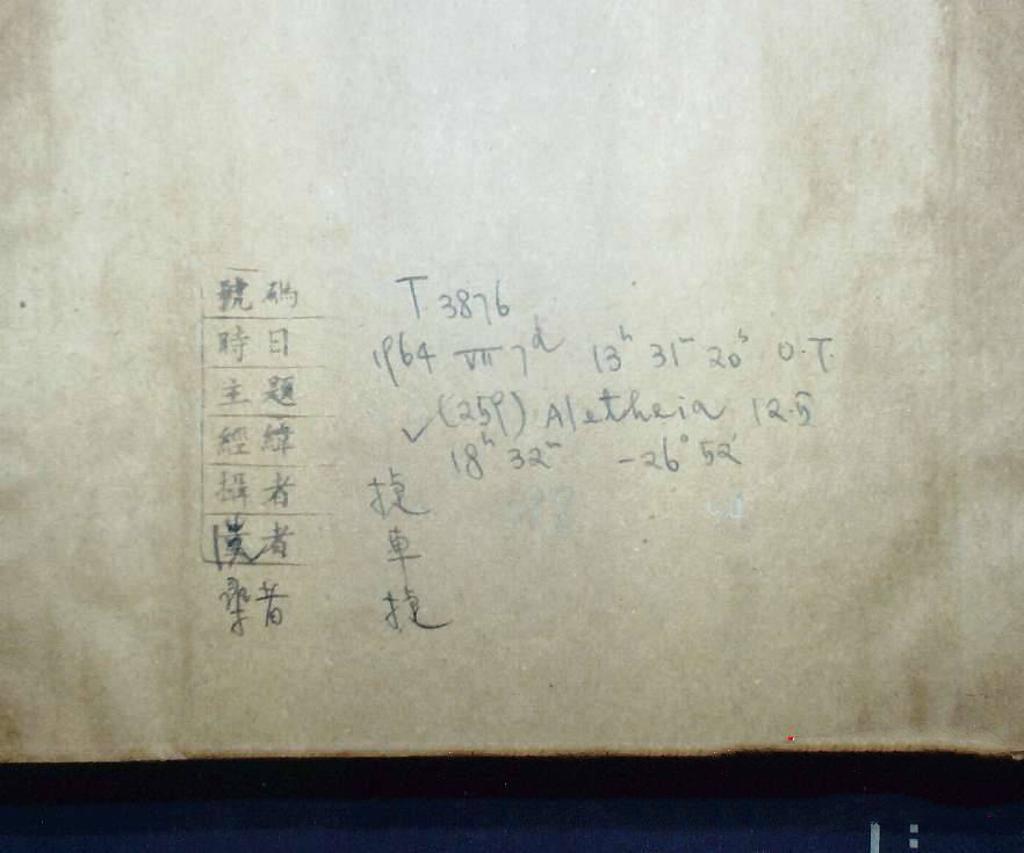 號碼 T 3876
時日 1964 VII 7d 13h 31m 20s U.T.
主題 ✓(259) Aletheia 12.5
經緯 18h 32m -26° 52'
攝者 捷
者 車
捷